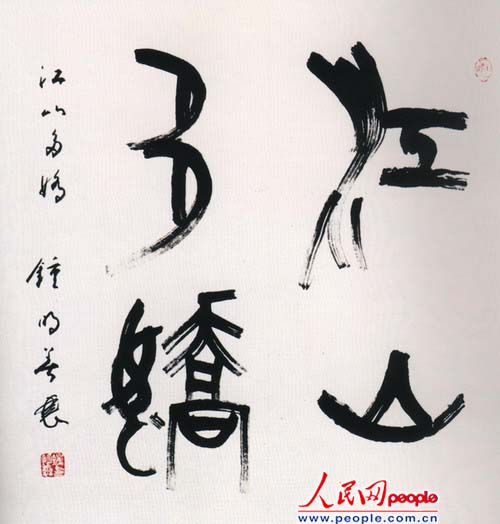 江山
多嬌
江山多嬌 鍾明善
人民网 people
www.people.com.cn